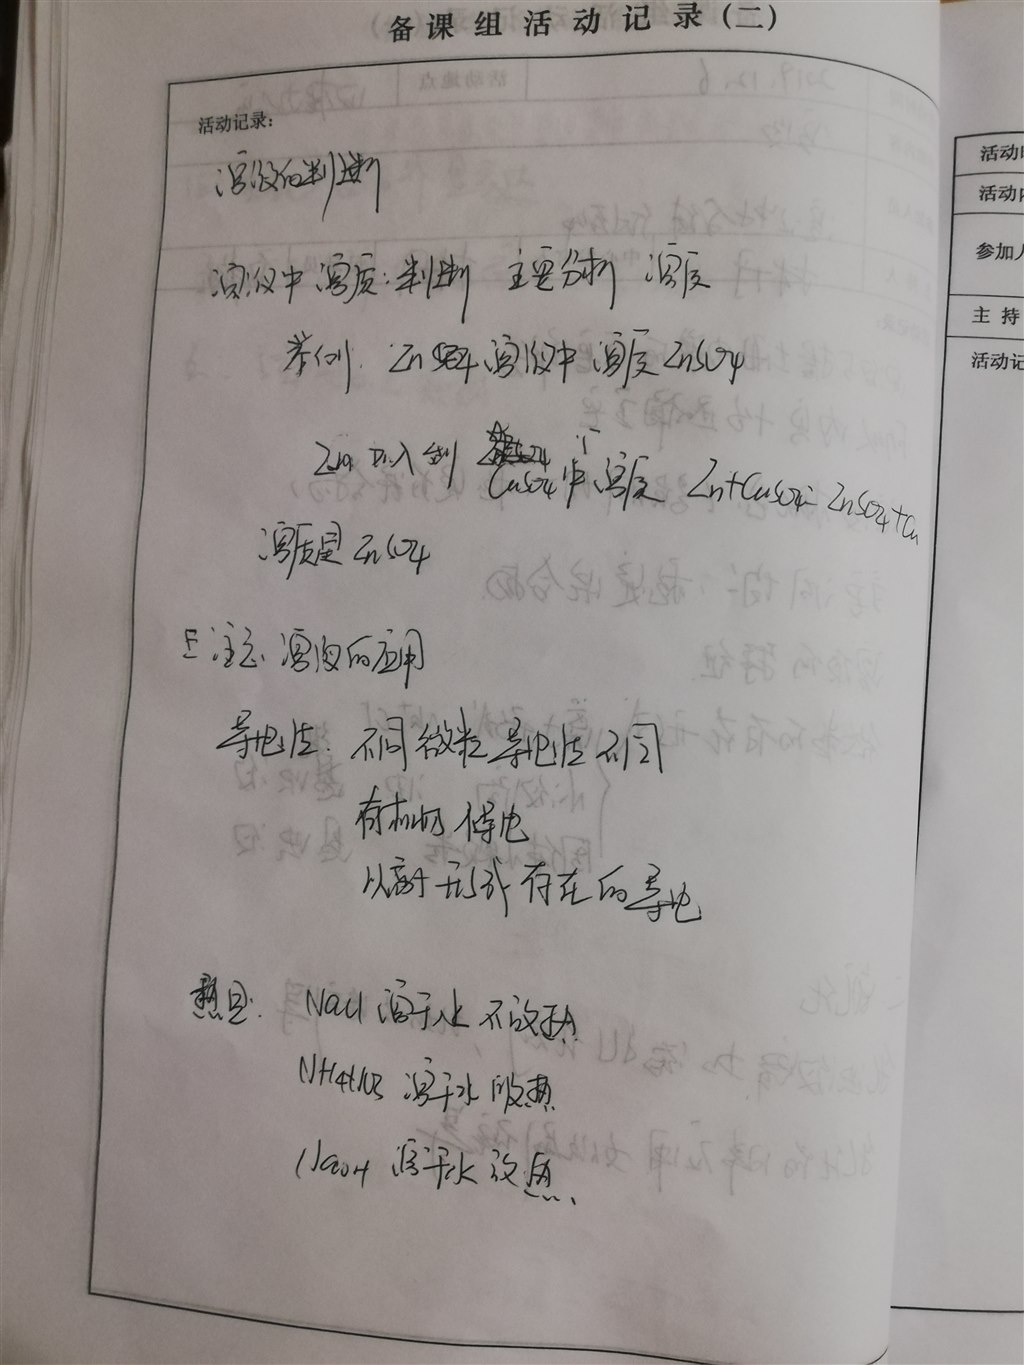 备课组活动记录（二）
活动记录：
溶液的判断
溶液中溶质：判断 主要分析 溶质
举例：Zn 溶液中溶质ZnSO4
Zn加入到 CuSO4中溶质 Zn+CuSO4=ZnSO4+Cu
溶质是ZnSO4
注意、溶液的应用
导电性：不同微粒导电性不同
有机物不导电
以离子形式存在的导电
NaCl 溶于水 不放热
NH4NO3 溶于水 吸热
NaOH 溶于水 放热
活动
活动内
参加人
主 持
活动记